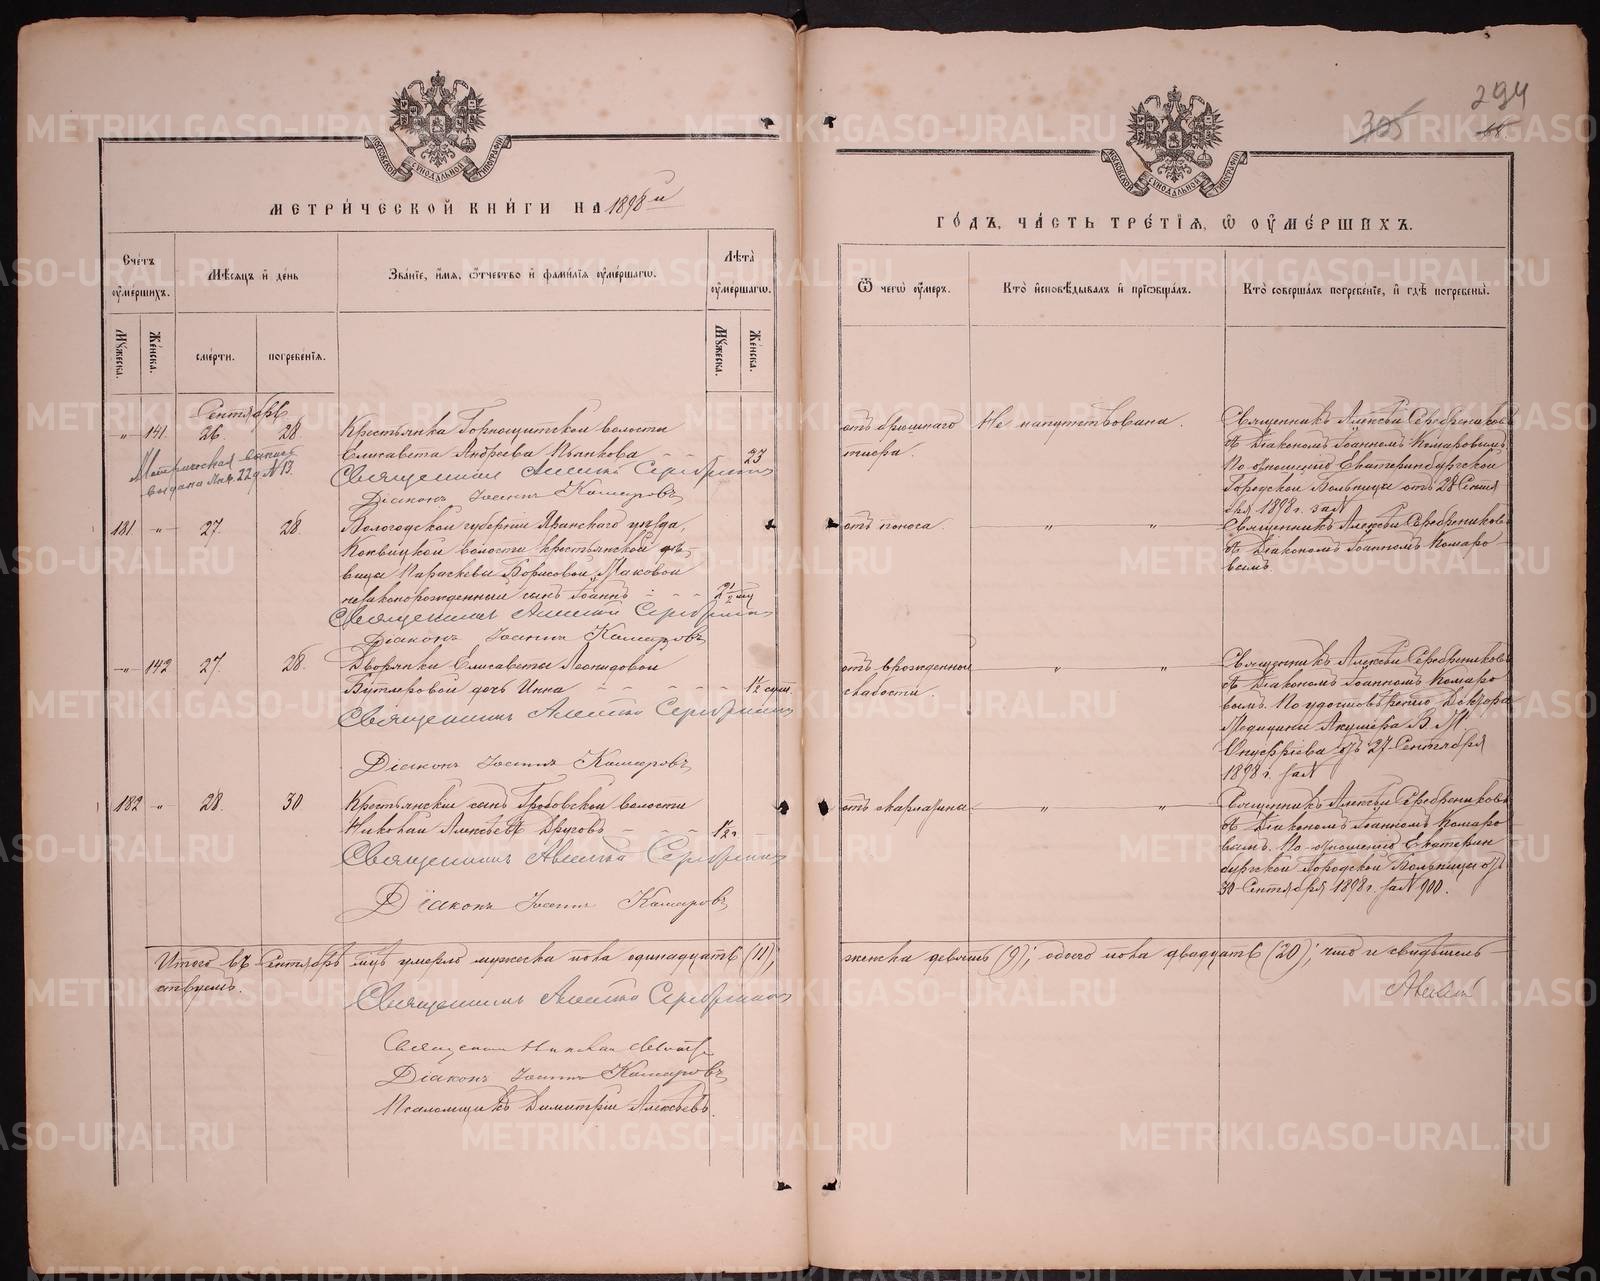 294
305
МОСКОВСКОЙ СѴНОДАЛЬНОЙ ТИПОГРАФІИ
МОСКОВСКОЙ СѴНОДАЛЬНОЙ ТИПОГРАФІИ
МЕТРИЧЕСКОЙ КНИГИ НА 1898 й
ГОДЪ, ЧАСТЬ ТРЕТІЯ, Ѡ ОУМЕРШИХЪ.
Счетъ оумершихъ.
Мѣсяцъ и день
Званіе, имя, ѡтчество и фамилія оумершагѡ.
Лѣта оумершагѡ.
Ѿ чегѡ оумеръ.
Кто исповѣдывалъ и пріобщалъ.
Кто совершалъ погребеніе, и гдѣ погребены.
Мужеска.
Женска.
смерти.
погребенія.
Мужеска.
Женска.
Сентябрь
„ 141 26. 28. Крестьянка Горнощитской волости
Елисавета Андреева Пьянкова 23
Метрическая выпись
выдана Янв. 22 д. N 13.
Священникъ Алексѣй Серебрениковъ
Діаконъ Іоаннъ Комаровъ
отъ брюшнаго
тифа.
Не напутствована.
Священникъ Алексѣй Серебрениковъ
съ Діакономъ Іоанномъ Комаровымъ
По отношенію Екатеринбургской
Городской Больницы отъ 28 Сентя
бря 1898 г. за N
181 „ 27. 28. Вологодской губерніи Яранскаго уѣзда,
волости крестьянской дѣ
вицы Параскевы Борисовой Маковой
незаконорожденный сынъ Іоаннъ 2 1/2 мц
Священникъ Алексѣй Серебрениковъ
Діаконъ Іоаннъ Комаровъ
отъ поноса. „ „
Священникъ Алексѣй Серебрениковъ
съ Діакономъ Іоанномъ Комаро
вымъ.
„ 142 27. 28. Дворянки Елисаветы Леонидовой
Бутлеровой дочь Инна 1 1/2 сут.
Священникъ Алексѣй Серебрениковъ
Діаконъ Іоаннъ Комаровъ
отъ врожденной
слабости. „ „
Священникъ Алексѣй Серебрениковъ
съ Діакономъ Іоанномъ Комаро
вымъ. По удостовѣренію Доктора
Медицины Акушера В. М.
Онуфріева отъ 27 Сентября
1898 г. за N
182 „ 28. 30 Крестьянскій сынъ Гробовской волости
Николай Алексѣевъ Друговъ 1 1/2 г.
Священникъ Алексѣй Серебрениковъ
Діаконъ Іоаннъ Комаровъ
отъ скарлатины „ „
Священникъ Алексѣй Серебрениковъ
съ Діакономъ Іоанномъ Комаро
вымъ. По отношенію Екатерин
бургской Городской Больницы отъ
30 Сентября 1898 г. за N 900.
Итого въ Сентябрѣ м-цѣ умерло мужеска пола одинадцать (11),
женска девять (9); обоего пола двадцать (20); что и свидѣтель
ствуемъ.
Священникъ Алексѣй Серебрениковъ
Священникъ Николай
Діаконъ Іоаннъ Комаровъ
Псаломщикъ Димитрій Алексѣевъ.
METRIKI.GASO-URAL.RU